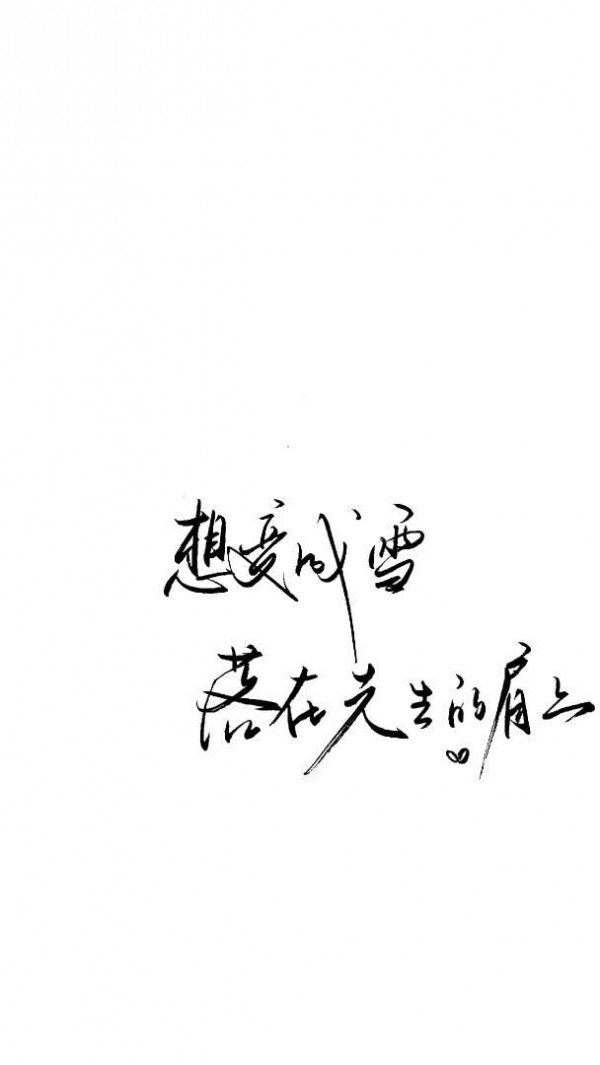 想变成雪
落在先生的眉上